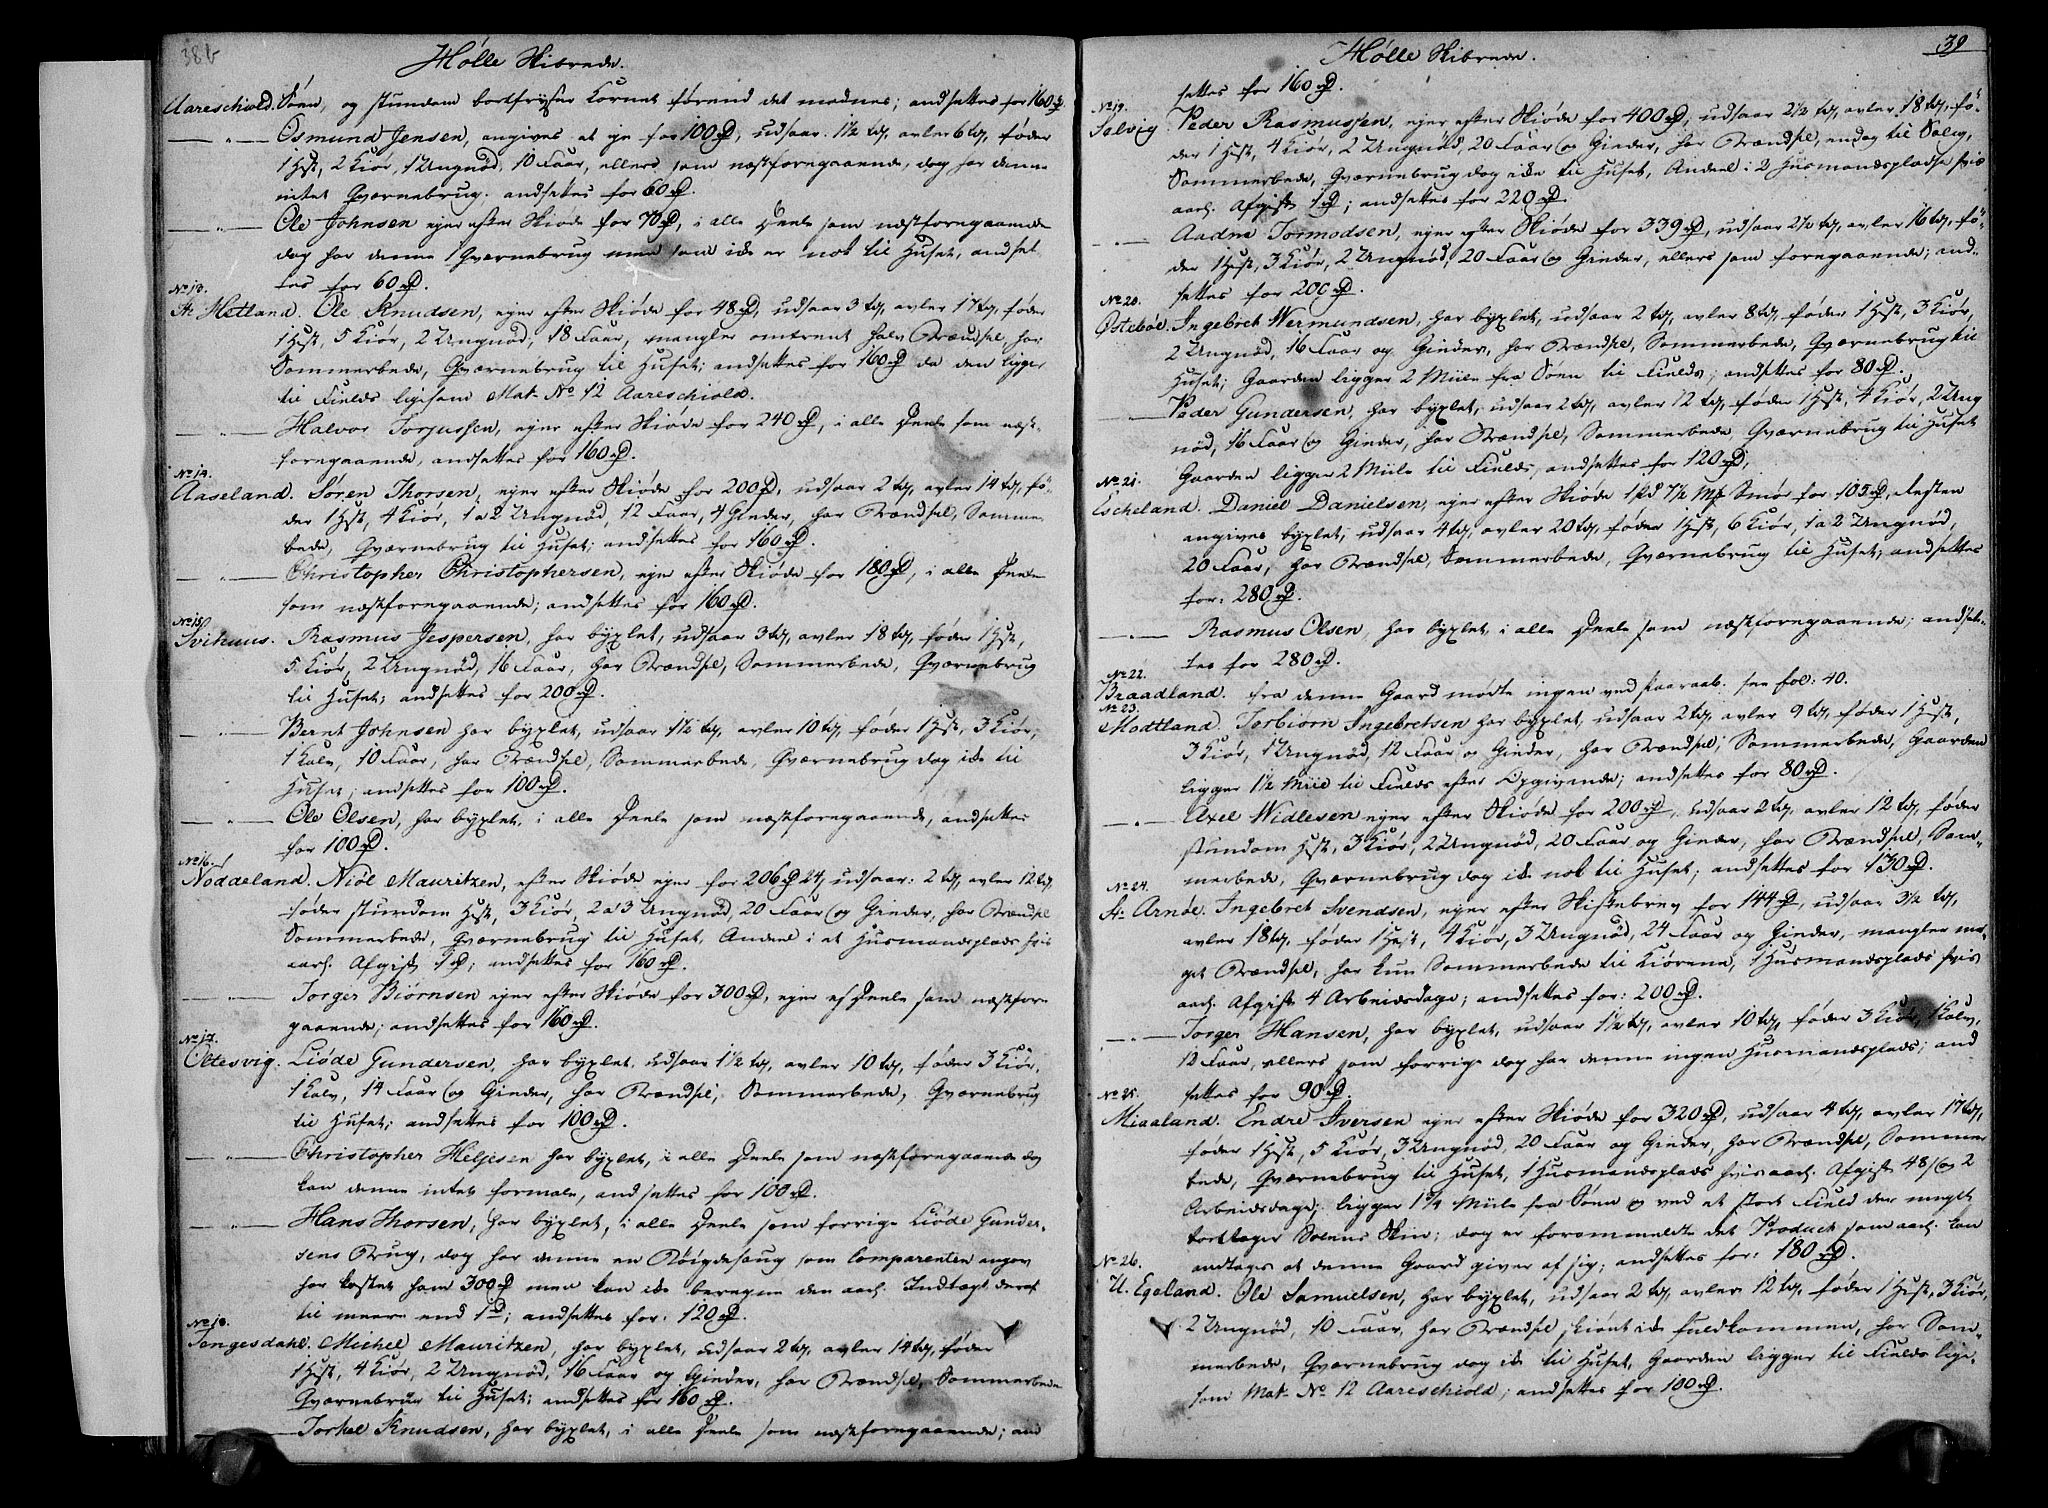 38b
Hølle Skibrede.
Aareschiold. Søen, og stundom bortfryser Kornet førend det modnes; andsettes for 160 rd.
— " — Osmund Jensen, angives at eje for 100 rd, udsaar 1½ td, avler 6 td, føder
1 Hest, 2 Kiør, 1 Ungnød, 10 Faar, ellers som næstforegaaende, dog har denne
intet Qværnebrug. andsettes for 60 rd.
— " — Ole Johnsen ejer efter Skiøde for 70 rd, i alle Deele som næstforegaaende
dog har denne 1 Qværnebrug men som ike er nok til Huset, andset-
tes for 60 rd.
No 13.
St. Hetland. Ole Knudsen, ejer efter Skiøde for 48 rd, udsaar 3 td, avler 17 td, føder
1 Hest, 5 Kiør, 2 Ungnød, 18 Faar, mangler omtrent halv Brændsel, har
Sommerbede, Qværnebrug til Huset; andsettes for 160 rd da den ligger
til Fields ligesom Mat. No 12 Aareschiold.
— " — Halvor Torjussen, ejer efter Skiøde for 240 rd, i alle Deele som næst-
foregaaende, andsettes for 160 rd.
No 14.
Aaseland. Søren Thorsen, ejer efter Skiøde for 200 rd, udsaar 2 td, avler 14 td, fø-
der 1 Hest, 4 Kiør, 1 a 2 Ungnød, 12 Faar, 4 Gieder, har Brændsel, Sommer
bede, Qværnebrug til Huset; andsettes for 160 rd.
— " — Christopher Christophersen, ejer efter Skiøde for 180 rd, i alle Deele
som næstforegaaende; andsettes for 160 rd.
No 15
Svihuus. Rasmus Jespersen, har byxlet, udsaar 3 td, avler 18 td, føder 1 Hest,
5 Kiør, 2 Ungnød, 16 Faar, har Brændsel, Sommerbede, Qværnebrug
til Huset; andsettes for 200 rd.
— " — Bernt Johnsen har byxlet, udsaar 1½ td, avler 10 td, føder 1 Hest, 3 Kiør,
1 Kalv, 10 Faar, har Brændsel, Sommerbede, Qværnebrug dog ike til
Huset; andsettes for 100 rd.
— " — Ole Olsen, har byxlet, i alle Deele som næstforegaaende, andsettes
for 100 rd.
No 16.
Noddeland. Niöl Mauritzen, efter Skiøde ejer for 206 rd 24, udsaar: 2 td, avler 12 td,
føder stundom Hest, 3 Kiør, 2 a 3 Ungnød, 20 Faar og Gieder, har Brændsel
Sommerbede, Qværnebrug til Huset, Andeel i et Huusmandsplads hvis
aarl. Afgift 1 rd; andsettes for 160 rd.
— " — Torger Biørnsen ejer efter Skiøde for 300 rd, ejer af Deele som næstfore
gaaende; andsettes for 160 rd.
No 17.
Ottesvig. Liøde Gundersen, har byxlet, udsaar 1½ td, avler 10 td, føder 3 Kiør,
1 Kalv, 14 Faar og Gieder, har Brændsel, Sommerbede, Qværnebrug
til Huset; andsettes for 100 rd.
— " — Christopher Heljesen har byxlet, i alle Deele som næstforegaaende dog
kan denne intet formale, andsettes for 100 rd.
— " — Hans Thorsen, har byxlet, i alle Deele som forrige Liøde Gunder-
sens Brug, dog har denne en Bøigdesaug som Comparenten angav
har kostet ham 300 rd men kan ike beregne den aarl. Indtægt deraf
til meere end 1 rd; andsettes for: 120 rd.
No 18.
Tengesdahl. Michel Mauritzen, har byxlet, udsaar 2 td, avler 14 td, føder
1 Hest, 4 Kiør, 2 Ungnød, 16 Faar og Gieder, har Brændsel, Sommerbede
Qværnebrug til Huset; andsettes for 160 rd.
— " — Torkel Knudsen, har byxlet, i alle Deele som næstforegaaende; and
39
Hølle Skibrede.
settes for 160 rd.
No 19.
Solvig. Peder Rasmussen, ejer efter Skiøde for 400 rd, udsaar 2½ td, avler 18 td, fø-
der 1 Hest, 4 Kiør, 2 Ungnød, 20 Faar og Gieder, har Brændsel, endog til Salg,
Sommerbede, Qværnebrug dog ike til Huset, Andeel i 2 Huusmandspladse hvis
aarl. Afgift 1 rd; andsettes for 220 rd.
— " — Aadne Tormodsen, ejer efter Skiøde for 339 rd, udsaar 2½ td, avler 16 td, fø-
der 1 Hest, 3 Kiør, 2 Ungnød, 20 Faar og Gieder, ellers som foregaaende; and-
settes for 200 rd.
No 20.
Østebøe. Ingebret Wermundsen, har byxlet, udsaar 2 td, avler 8 td, føder 1 Hest, 3 Kiør,
2 Ungnød, 16 Faar og Gieder, har Brændsel, Sommerbede, Qværnebrug til
Huset; Gaarden ligger 2 Miile fra Søen til Fields; andsettes for 80 rd.
— Peder Gundersen, har byxlet, udsaar 2 td, avler 12 td, føder 1 Hest, 4 Kiør, 2 Ung
nød, 16 Faar og Gieder, har Brændsel, Sommerbede, Qværnebrug til Huset
Gaarden ligger 2 Miile til Fields, andsettes for 120 rd;
No 21.
Escheland. Daniel Danielsen, ejer efter Skiøde 1 pd 7½ Mk Smør for 105 rd, Resten
angives byxlet, udsaar 4 td, avler 20 td, føder 1 Hest, 6 Kiør, 1 a 2 Ungnød,
20 Faar, har Brændsel, Sommerbede, Qværnebrug til Huset; andsettes
for: 280 rd.
— " — Rasmus Olsen, har byxlet, i alle Deele som næstforegaaende; andset-
tes for 280 rd.
No 22.
Braadland. fra denne Gaard mødte ingen ved Paaraab. see fol: 40.
No 23.
Modtland. Torbiørn Ingebretsen har byxlet, udsaar 2 td, avler 9 td, føder 1 Hest,
3 Kiør, 1 Ungnød, 12 Faar og Gieder, har Brændsel; Sommerbede, Gaarden
ligger 1½ Miil til Fields efter Opgivende; andsettes for 80 rd.
— " — Axel Widlesen ejer efter Skiøde for 200 rd, udsaar 2 td, avler 12 td, føder
stundom Hest, 3 Kiør, 2 Ungnød, 20 Faar og Gieder, har Brændsel, Som-
merbede, Qværnebrug dog ike nok til Huset; andsettes for 130 rd.
No 24.
St: Arnøe. Ingebret Svendsen, ejer efter Skiftebrev for 144 rd, udsaar 3½ td,
avler 18 td, føder 1 Hest, 4 Kiør, 3 Ungnød, 24 Faar og Gieder, mangler me-
get Brændsel, har kun Sommerbede til Kiørene, 1 Huusmandsplads hvis
aarl. Afgift 4 Arbeidsdage; andsettes for: 200 rd.
— " — Torger Hansen, har byxlet, udsaar 1½ td, avler 10 td, føder 3 Kiør, 1 Kalv,
12 Faar, ellers som forrige dog har denne ingen Huusmandsplads; and
settes for 90 rd.
No 25.
Miaaland. Endre Iversen ejer efter Skiøde for 320 rd, udsaar 4 td, avler 17 td,
føder 1 Hest, 5 Kiør, 3 Ungnød, 20 Faar og Gieder, har Brændsel, Sommer
bede, Qværnebrug til Huset, 1 Huusmandsplads hvis aarl. Afgift 48 s og 2
Arbeidsdage; ligger 1¾ Miile fra Søen og ved et stort Field der meget
borttager Solens Skin; dog er forommeldte det Product som aarl. kan
andtages at denne Gaard giver af sig; andsettes for: 180 rd.
No 26.
U. Egeland. Ole Samuelsen, har byxlet, udsaar 2 td, avler 12 td, føder 1 Hest, 3 Kiør,
2 Ungnød, 10 Faar, har Brændsel skiønt ike fuldkommen, har Som-
merbede, Qværnebrug dog ike til Huset, Gaarden ligger til Fields lige-
som Mat. No 12 Aareschiold; andsettes for 100 rd.